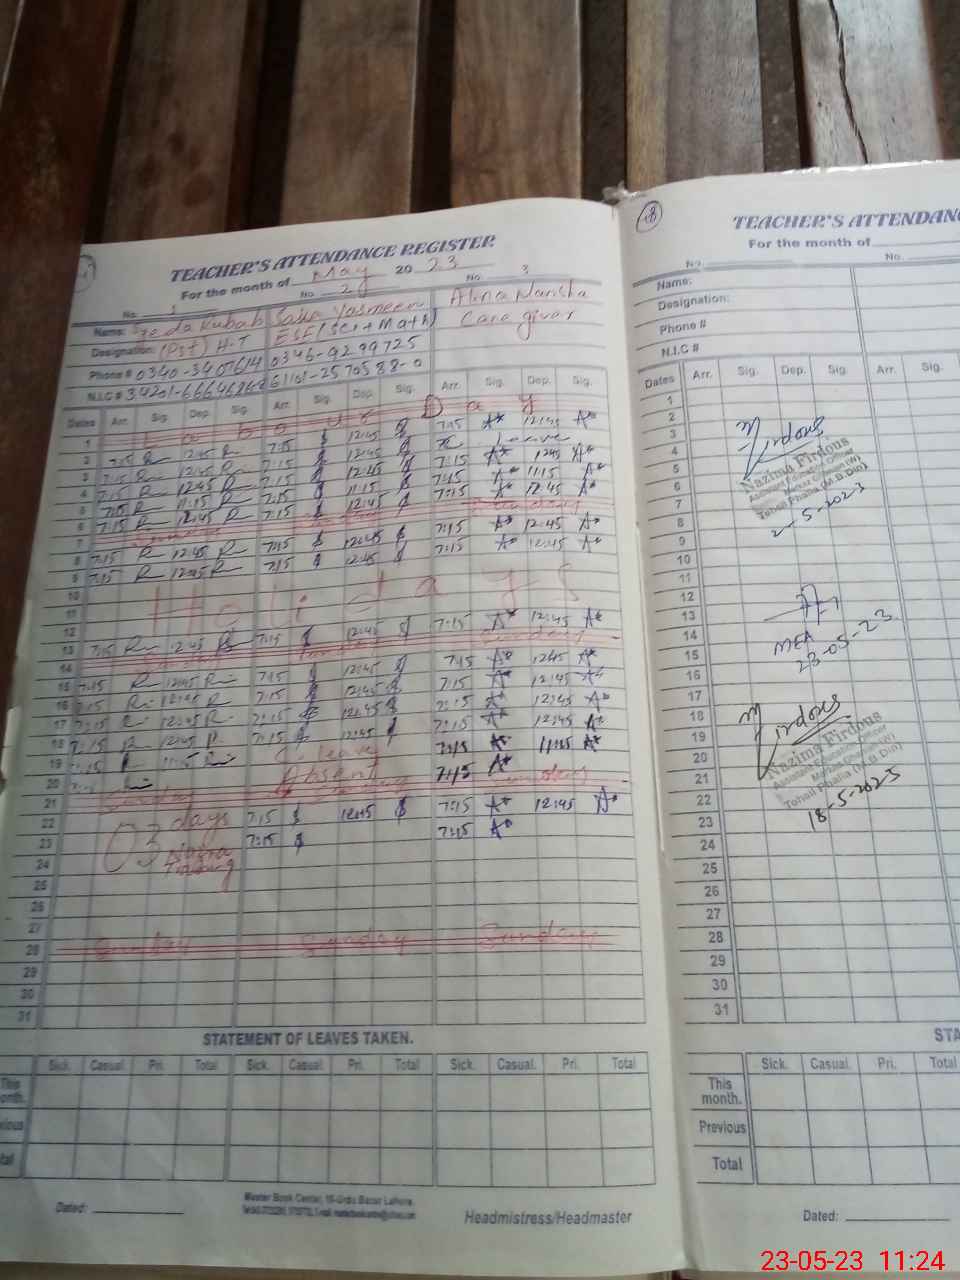 TEACHER'S ATTENDANCE REGISTER
For the month of May 20 23
No. 1 No. 2 No. 3
Name: Saba Yasmeen Alina Manisha
Designation: (Pst) H-T ESE (Sci + Math) Care giver
Phone # 0346-9299725
N.I.C #
Dates Arr. Sig. Dep. Sig. Arr. Sig. Dep. Sig. Arr. Sig. Dep. Sig.
1 Labour Day
2 7:15 12:45 7:15 12:45 7:15 12:45
3 7:15 12:45 7:15 12:45 Leave
4 7:15 12:45 7:15 12:45 7:15 12:45
5 7:15 11:15 7:15 11:15 7:15 11:15
6 7:15 12:45 7:15 12:45 7:15 12:45
7 Sunday Sunday Sunday
8 7:15 12:45 7:15 12:45 7:15 12:45
9 7:15 12:45 7:15 12:45 7:15 12:45
10
11 Holidays
12
13 7:15 12:45 7:15 12:45 7:15 12:45
14 Sunday Sunday Sunday
15 7:15 12:45 7:15 12:45 7:15 12:45
16 7:15 12:45 7:15 12:45 7:15 12:45
17 7:15 12:45 7:15 12:45 7:15 12:45
18 7:15 12:45 7:15 12:45 7:15 12:45
19 7:15 11:15 C. leave 7:15 11:15
20 Absent 7:15
21 Sunday Sunday Sunday
22 03 days 7:15 12:45 7:15 12:45
23 7:15 7:15
24 Training
25
26
27
28 Sunday Sunday Sunday
29
30
31
STATEMENT OF LEAVES TAKEN.
Sick. Casual. Pri. Total Sick. Casual. Pri. Total Sick. Casual. Pri. Total
This
onth.
vious
tal
Dated:
Master Book Center, 16-Urdu Bazar Lahore.
Headmistress/Headmaster
18
TEACHER'S ATTENDANC
For the month of
No. No.
Name:
Designation:
Phone #
N.I.C #
Dates Arr. Sig. Dep. Sig. Arr. Sig.
1
2
3
4
5
6
7
8
9
10
11
12
13
14
15
16
17
18
19
20
21
22
23
24
25
26
27
28
29
30
31
Firdous
Nazima Firdous
Assistant Education Officer
Tehsil Phalia (M.B.Din)
2-5-2023
MEA
23-05-23
Firdous
Nazima Firdous
Assistant Education Officer
Tehsil Phalia (M.B.Din)
18-5-2023
STA
Sick. Casual. Pri. Total
This
month.
Previous
Total
Dated:
23-05-23 11:24